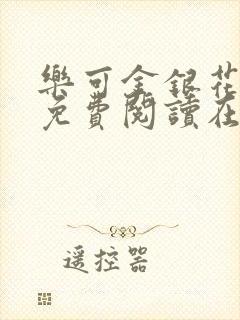 樂可金銀花
免費閱讀在
遥控器